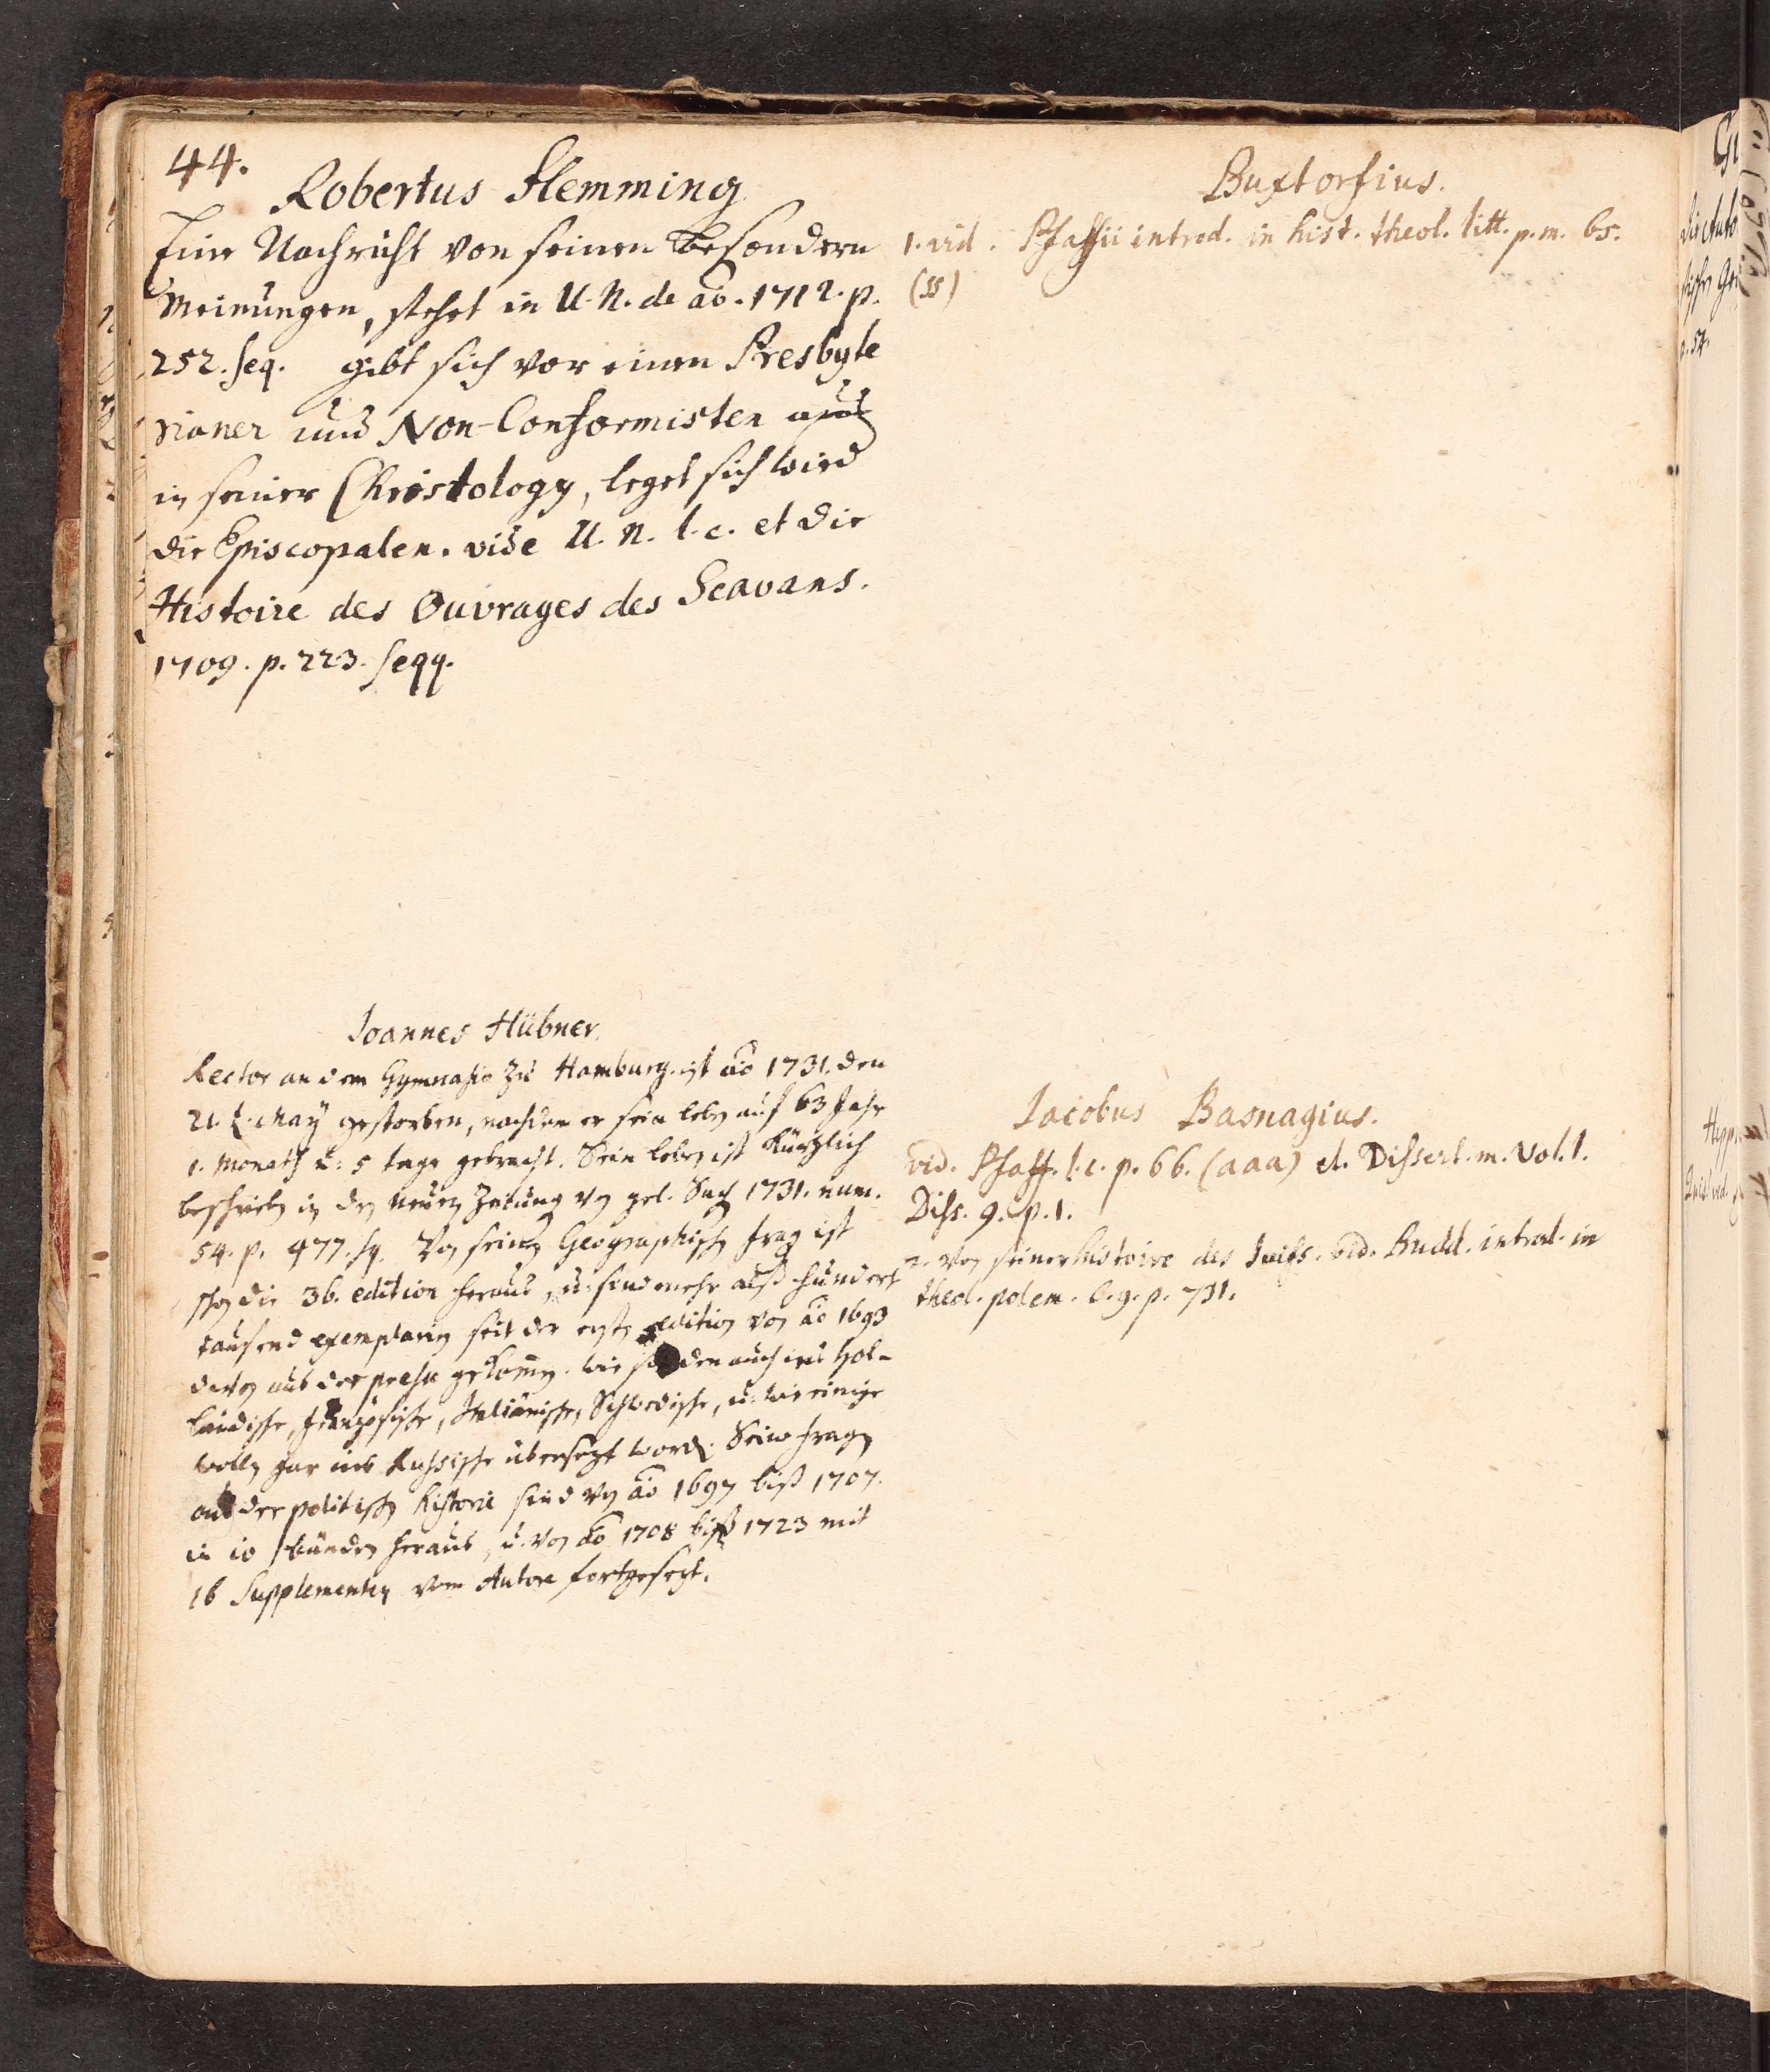 44.
Robertus Flemming
Eine Nachricht von seinen besondern
Meinungen, stehet in U. N. de ao. 1712. p.
252. seq. gibt sich vor einen Presbyte
rianer und Non-Conformisten aus
in seiner Christology, leget sich wied
die Episcopalen. vide U. N. l. c. et die
Histoire des Ouvrages des Scavans.
1709. p. 223. seqq.
Joannes Hübner.
Rector an dem Gymnasio zu Hamburg. ist ao 1731. den
21. May gestorben, nachdem er sein leben auf 63 Jahr
1. Monath u. 5 tage gebracht. Sein leben ist kürtzlich
beschrieben in den neuen Zeitung von gel. Sach 1731. num.
54. p. 477. sq. Von seinen Geographischen Frag ist
schon die 36. edition heraus, u. sind mehr alß hundert
tausend exemplarien seit der ersten edition von ao 1693
davon aus der presse gekommen. wie sie den auch ins Hol-
ländische, Französische, Italiänische, Schwedische, u. wie einige
wollen gar ins Russische übersetzt word. Seine Fragen
aus der politischen Historie sind von ao 1697 biß 1707.
in 10 bänden heraus, u. von ao 1708 biß 1723 mit
16 Supplementen vom Autore fortgesetzt.
Buxtorfius.
1. vid. Pfaffii introd. in hist. theol. litt. p. m. 65.
(ss)
Jacobus Basnagius.
vid. Pfaff. l. c. p. 66. (aaa) et. Dissert. m. Vol. 1.
Diss. 9. p. 1.
2. Von seiner histoire des Juifs. vid. Budd. introd. in
theol. polem. l. 9. p. 731.